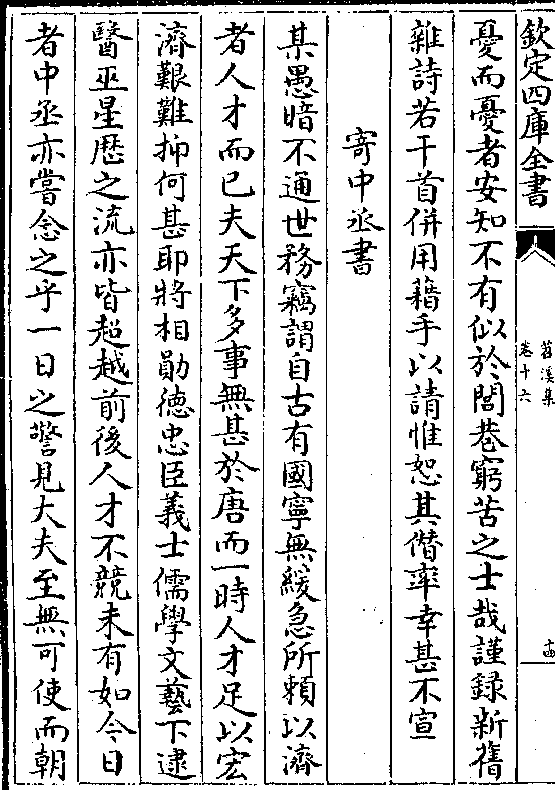 欽定四庫全書
苕溪集
卷十六
十四
憂而憂者安知不有似於閭巷窮苦之士哉謹録新舊
雜詩若干首併用藉手以請惟恕其僣率幸甚不宣
寄中丞書
某愚暗不通世務竊謂自古有國寧無緩急所賴以濟
者人才而已夫天下多事無甚於唐而一時人才足以宏
濟艱難抑何甚耶將相勛徳忠臣義士儒學文藝下逮
醫巫星歴之流亦皆超越前後人才不競未有如今日
者中丞亦嘗念之乎一日之警見大夫至無可使而朝